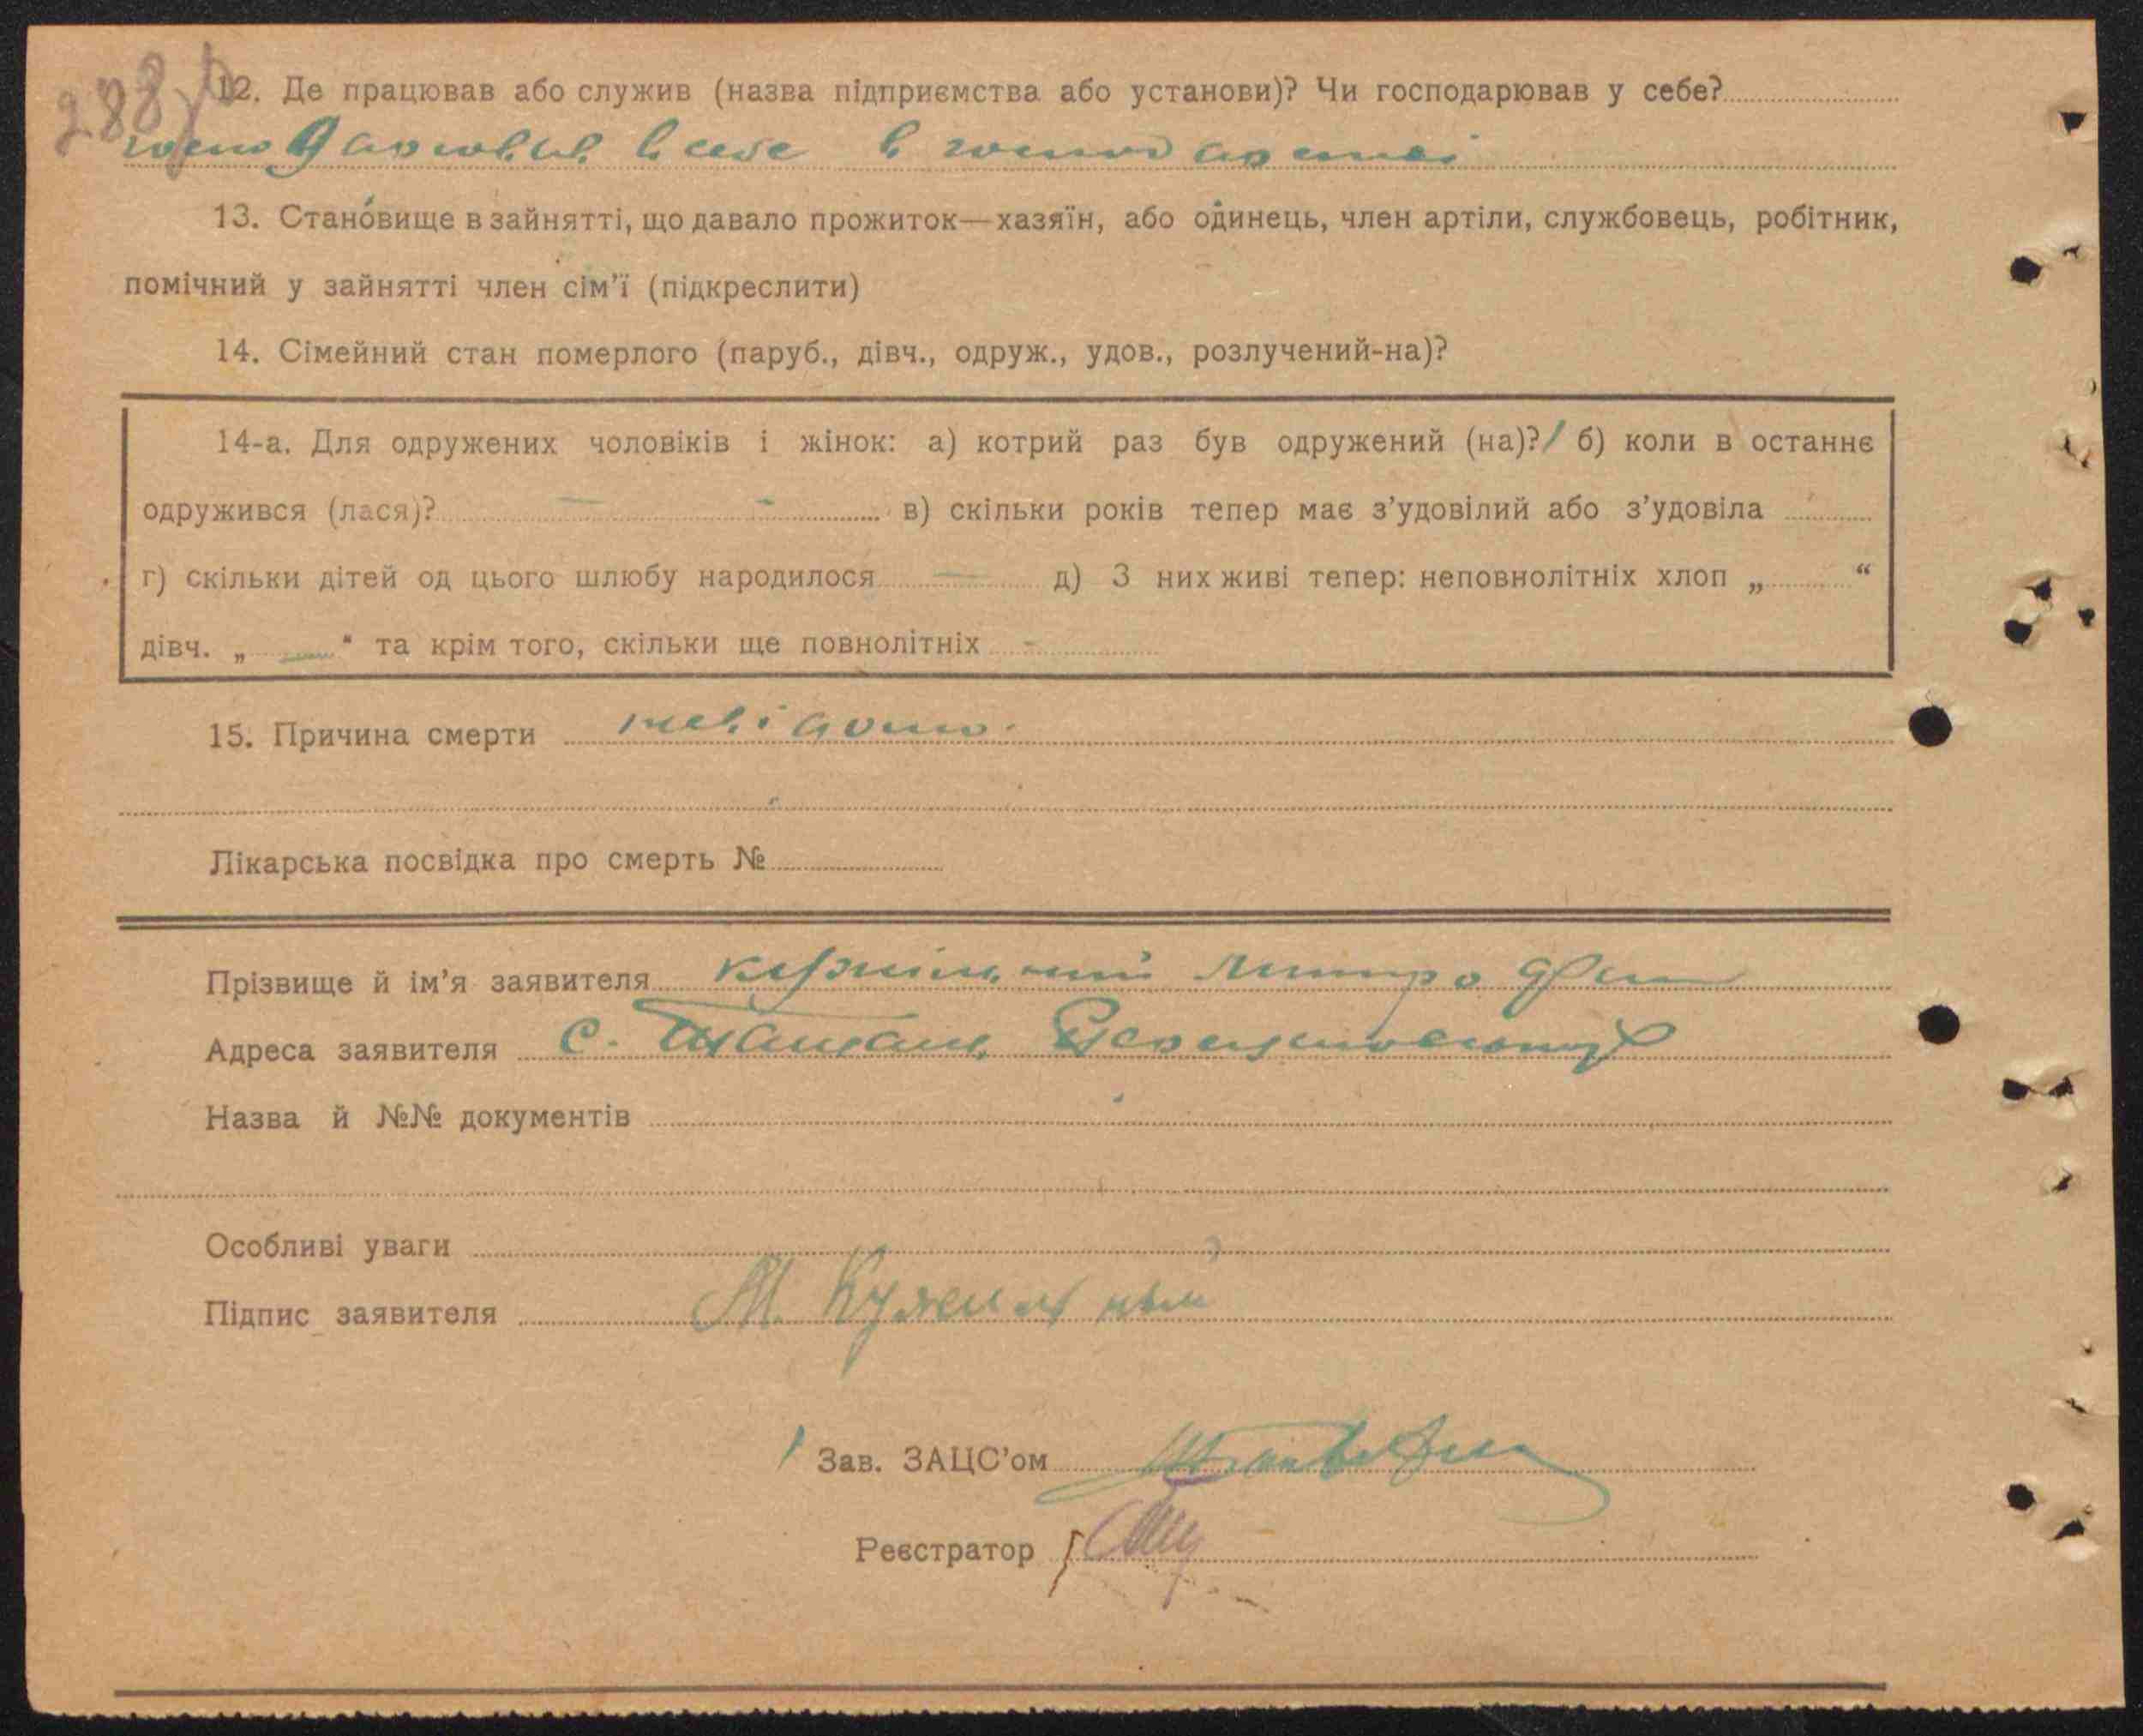 288
12. Де працював або служив (назва підприємства або установи)? Чи господарював у себе?
господарював в себе в господарстві
13. Становище в зайнятті, що давало прожиток—хазяїн, або одинець, член артіли, службовець, робітник,
помічний у зайнятті член сім'ї (підкреслити)
14. Сімейний стан померлого (паруб., дівч., одруж., удов., розлучений-на)?
14-а. Для одружених чоловіків і жінок: а) котрий раз був одружений (на)?/ б) коли в останнє
одружився (лася)? — - в) скільки років тепер має з'удовілий або з'удовіла
г) скільки дітей од цього шлюбу народилося — д) З них живі тепер: неповнолітніх хлоп „ “
дівч. „ — “ та крім того, скільки ще повнолітніх -
15. Причина смерти невідомо.
Лікарська посвідка про смерть №
Прізвище й ім'я заявителя Митрофан
Адреса заявителя с.
Назва й №№ документів
Особливі уваги
Підпис заявителя М.
Зав. ЗАЦС'ом
Реєстратор